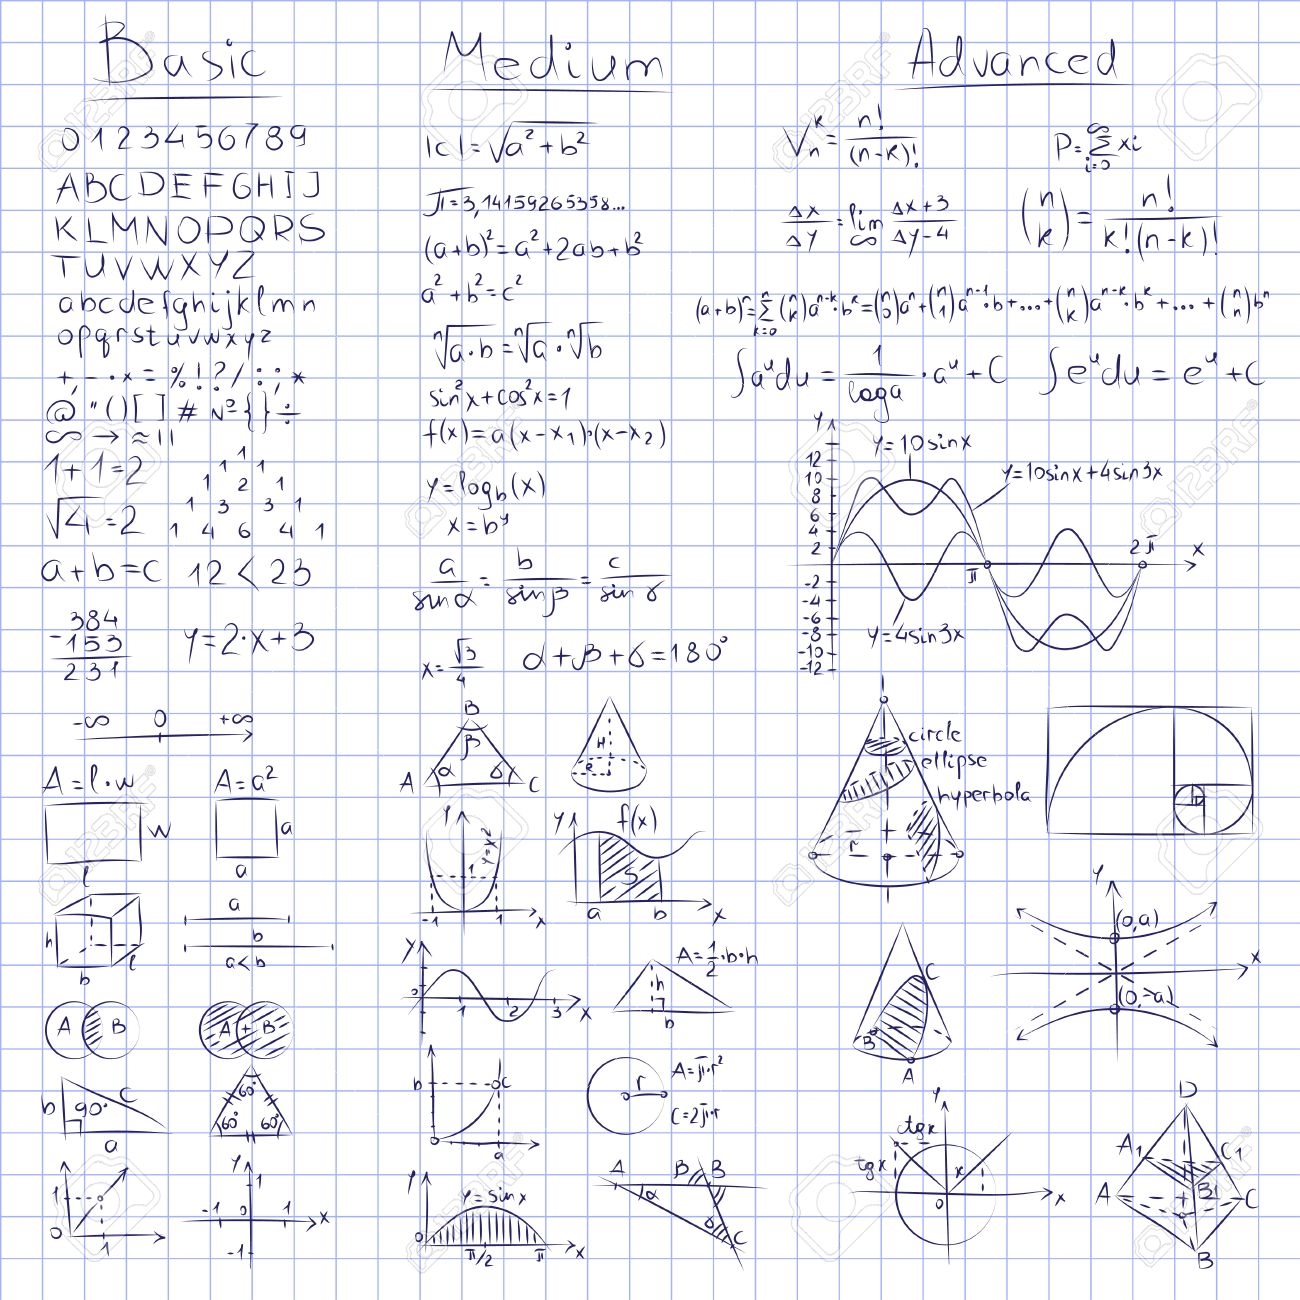 Basic
0123456789
ABCDEFGHIJ
KLMNOPQRS
TUVWXYZ
abcdefghijklmn
opqrstuvwxyz
+,-·×=%!?/:;*
@"()[]#№{}÷
∞→≈||
1+1=2
1
1 1
1 2 1
1 3 3 1
1 4 6 4 1
√4=2
a+b=c 12<23
384
-153
231
y=2·x+3
-∞ 0 +∞
A=l·w
w
l
A=a²
a
a
h
b
l
a
b
a<b
A B
A + B
b 90° c
a
60°
60° 60°
1
0
1
y
1
-1 0 1 x
-1
Medium
|c|=√a²+b²
π=3,14159265358...
(a+b)²=a²+2ab+b²
a²+b²=c²
ⁿ√a·b=ⁿ√a·ⁿ√b
sin²x+cos²x=1
f(x)=a(x-x₁)·(x-x₂)
y=log_b(x)
x=b^y
a/sinα = b/sinβ = c/sin γ
x=√3/4
α+β+δ=180°
B
β
A α δ C
H
R
y
y=x²
1
-1 1 x
y
f(x)
S
a b x
y
0
1 2 3 x
A=1/2·b·h
h
b
b
c
0
a
r
A=π·r²
C=2π·r
y
y=sinx
0 π/2 π x
A B B
α
δ
C
Advanced
V_n^k=n!/(n-k)!
P=∑_{i=0}^∞ xi
Δx/Δy=lim_∞ Δx+3/Δy-4
(n k)=n!/k!(n-k)!
(a+b)^n=∑_{k=0}^n (n k)a^{n-k}·b^k=(n 0)a^n+(n 1)a^{n-1}·b+...+(n k)a^{n-k}·b^k+...+(n n)b^n
∫a^u du=1/loga·a^u+C
∫e^u du=e^u+C
y
y=10sinx
y=10sinx+4sin3x
12
10
8
6
4
2
-2
-4
-6
-8
-10
-12
π
2π
x
y=4sin3x
circle
ellipse
hyperbola
r
y
(0,a)
x
(0,-a)
C
B
A
y
ctgx
tgx
x
0
x
D
A₁ C₁
B₁
A C
B
123RF